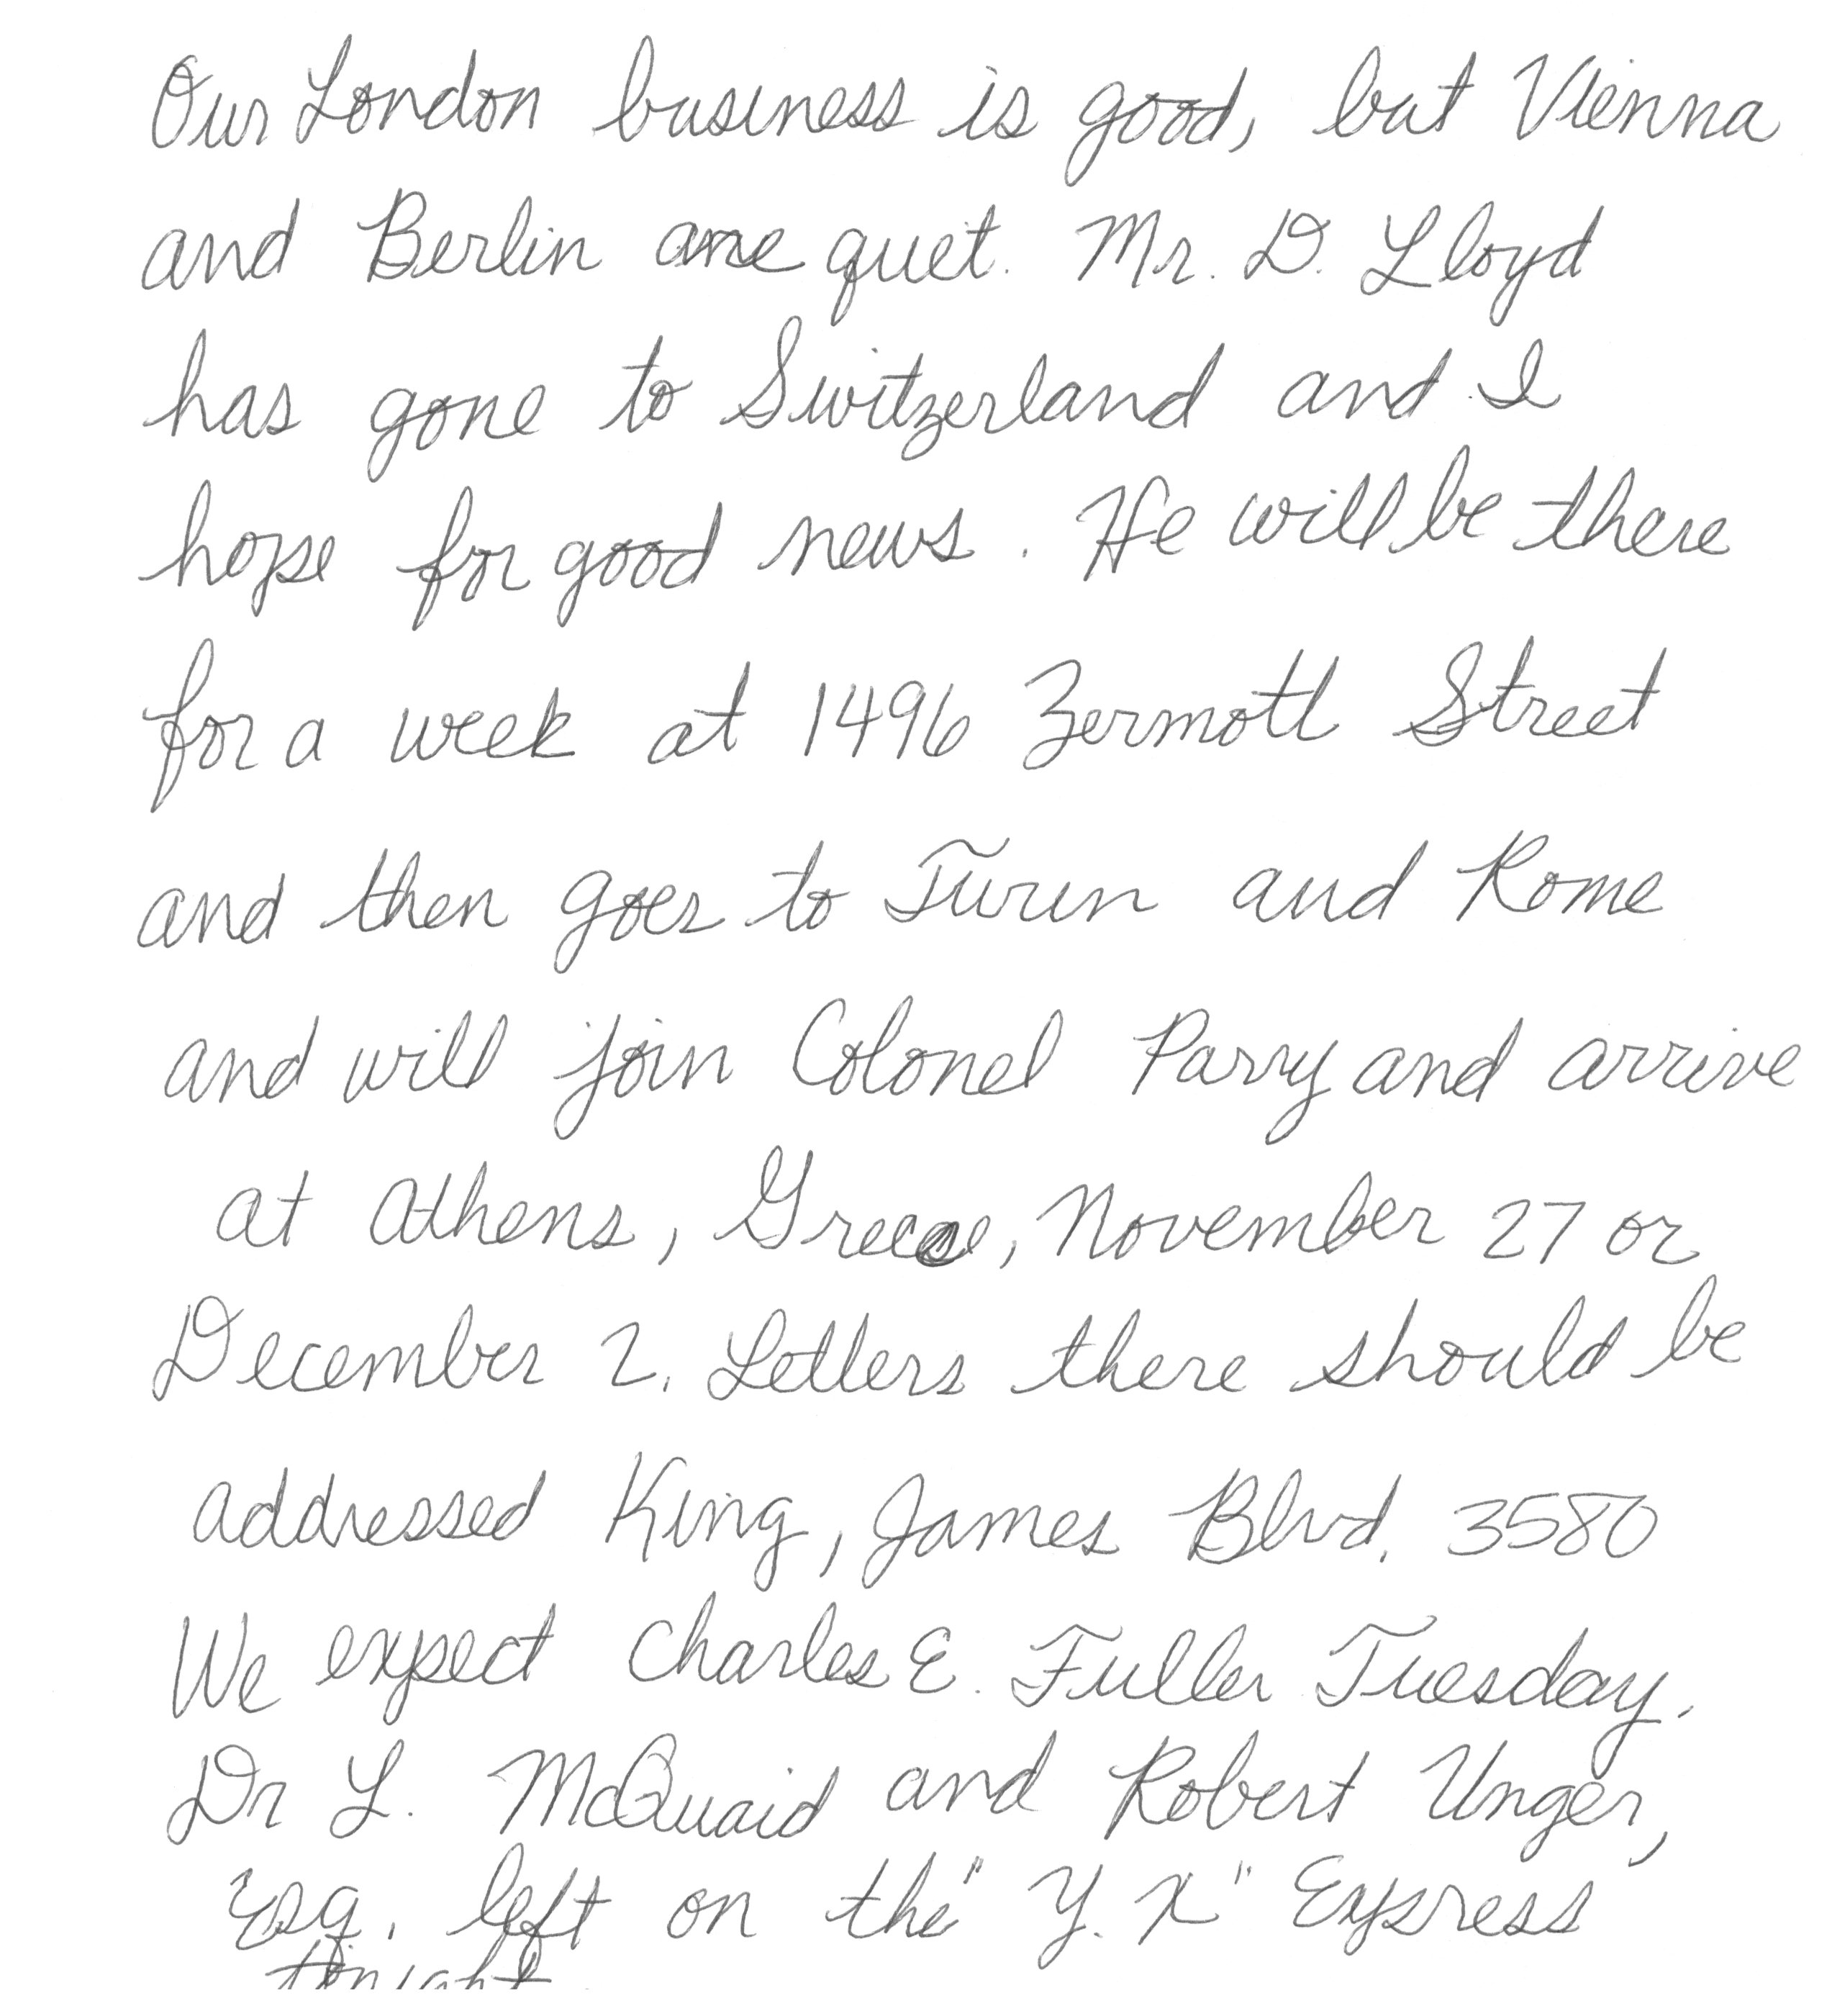 Our London business is good, but Vienna
and Berlin are quet. Mr. D. Lloyd
has gone to Switzerland and I
hope for good news. He will be there
for a week at 1496 Zermott Street
and then goes to Turin and Rome
and will join Colonel Parry and arrive
at Athens, Greece, November 27 or
December 2. Letters there should be
addressed King, James Blvd. 3580
We expect Charles E. Fuller Tuesday.
Dr L. McQuaid and Robert Unger,
Esq. left on the "Y. X" Express
tonight.